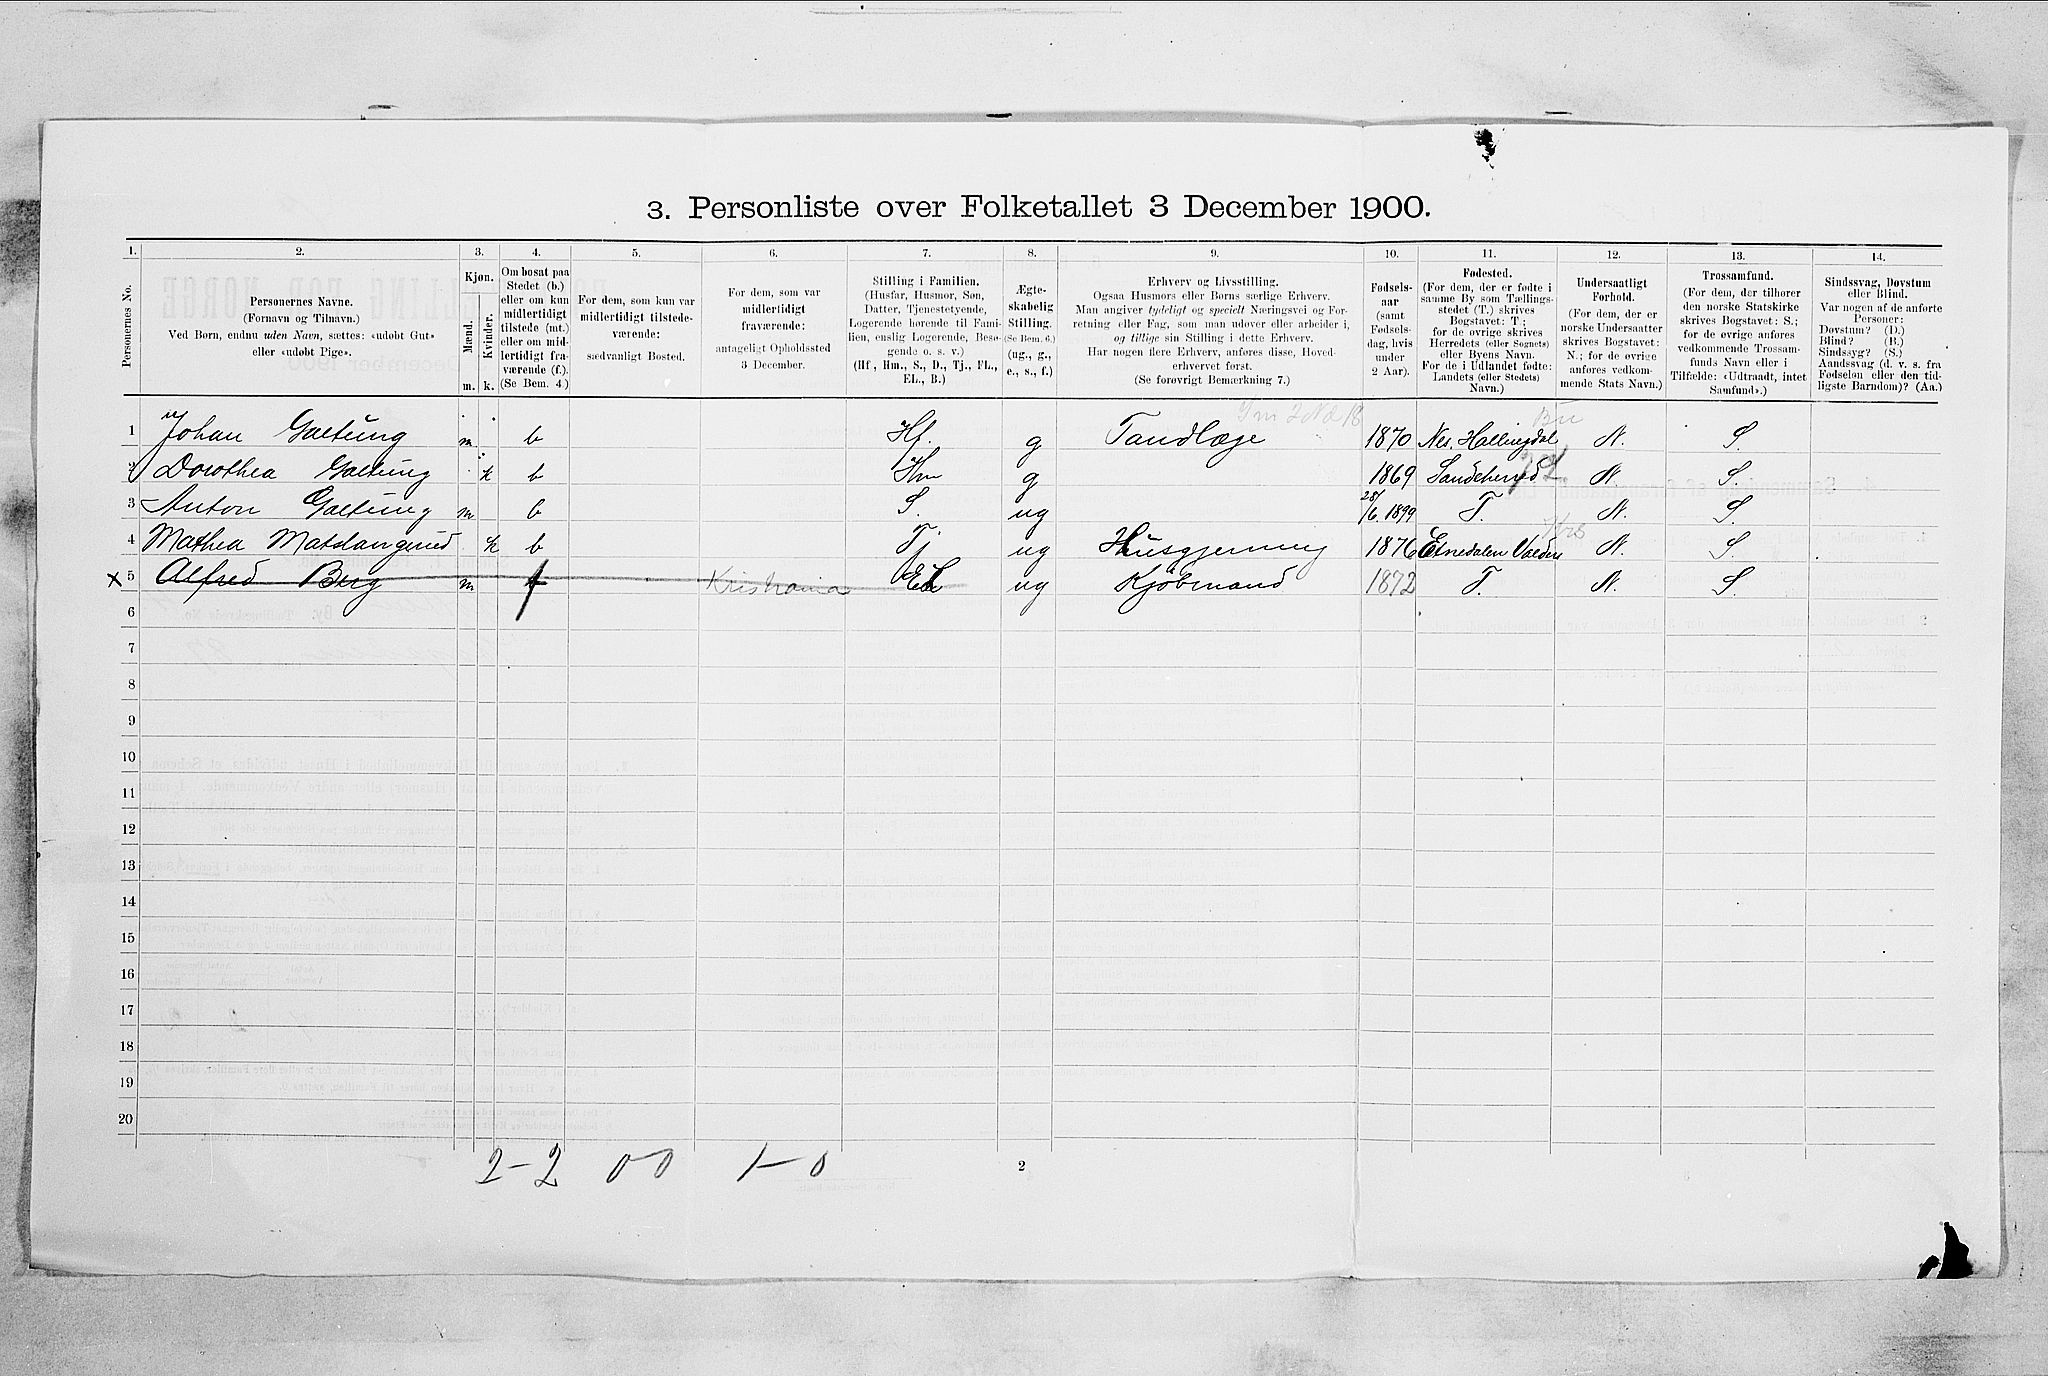 3. Personliste over Folketallet 3 December 1900.
1. 2. 3. 4. 5. 6. 7. 8. 9. 10. 11. 12. 13. 14.
Personernes No.
Personernes Navne.
(Fornavn og Tilnavn.)
Ved Børn, endnu uden Navn, sættes: «udøbt Gut»
eller «udøbt Pige».
Kjøn.
Mænd.
Kvinder.
m. k.
Om bosat paa
Stedet (b.)
eller om kun
midlertidigt
tilstede (mt.)
eller om mid-
lertidigt fra-
værende (f.).
(Se Bem. 4.)
For dem, som kun var
midlertidigt tilstede-
værende:
sædvanligt Bosted.
For dem, som var
midlertidigt
fraværende:
antageligt Opholdssted
3 December.
Stilling i Familien.
(Husfar, Husmor, Søn,
Datter, Tjenestetyende,
Logerende hørende til Fami-
lien, enslig Logerende, Besø-
gende o. s. v.)
(Hf., Hm., S., D., Tj., FL.,
EL., B.)
Ægte-
skabelig
Stilling.
(Se Bem. 6.)
(ug., g.,
e., s., f.)
Erhverv og Livsstilling.
Ogsaa Husmors eller Børns særlige Erhverv.
Man angiver tydeligt og specielt Næringsvei og For-
retning eller Fag, som man udøver eller arbeider i,
og tillige sin Stilling i dette Erhverv.
Har nogen flere Erhverv, anføres disse, Hoved-
erhvervet først.
(Se forøvrigt Bemærkning 7.)
Fødsels-
aar
(samt
Fødsels-
dag, hvis
under
2 Aar).
Fødested.
(For dem, der er fødte i
samme By som Tællings-
stedet (T.) skrives
Bogstavet: T.;
for de øvrige skrives
Herredets (eller Sognets)
eller Byens Navn.
For de i Udlandet fødte:
Landets (eller Stedets)
Navn.)
Undersaatligt
Forhold.
(For dem, der er
norske Undersaatter
skrives Bogstavet:
N.; for de øvrige
anføres vedkom-
mende Stats Navn.)
Trossamfund.
(For dem, der tilhører
den norske Statskirke
skrives Bogstavet: S.;
for de øvrige anføres
vedkommende Trossam-
funds Navn eller i
Tilfælde: «Udtraadt, intet
Samfund».)
Sindssvag, Døvstum
eller Blind.
Var nogen af de anførte
Personer:
Døvstum? (D.)
Blind? (B.)
Sindssyg? (S.)
Aandssvag (d. v. s. fra
Fødselen eller den tid-
ligste Barndom)? (Aa.)
Bu
1 Johan Galtung m b Hf. g Tandlæge 1870 Nes. Hallingdal N. S.
2 Dorothea Galtung k b Hm g 1869 Sandeherred N. S.
3 Anton Galtung m b S. ug 28/6. 1899 T. N. S.
4 Mathea Matslangerud k b Tj ug Husgjerning 1876 Etnedalen Valders N. S.
x 5 Alfred Berg m f Kristiania EL ug Kjøbmand 1872 T. N. S.
6
7
8
9
10
11
12
13
14
15
16
17
18
19
20
2-2 0-0 1-0
2